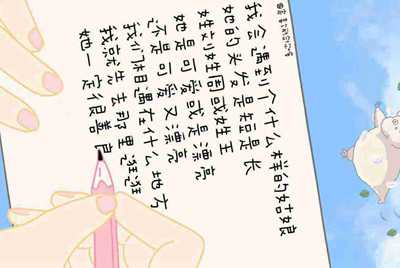 我会遇到个什么样的姑娘
她的头发是短是长
姓刘姓周或姓王
她是可爱或是漂亮
还是可爱又漂亮
我们相遇在什么地方
我就先去那里逛逛
她一定很善